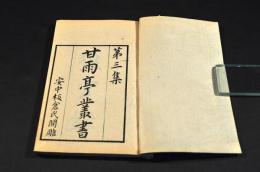 第三集
甘雨亭叢書
安中板倉氏開雕